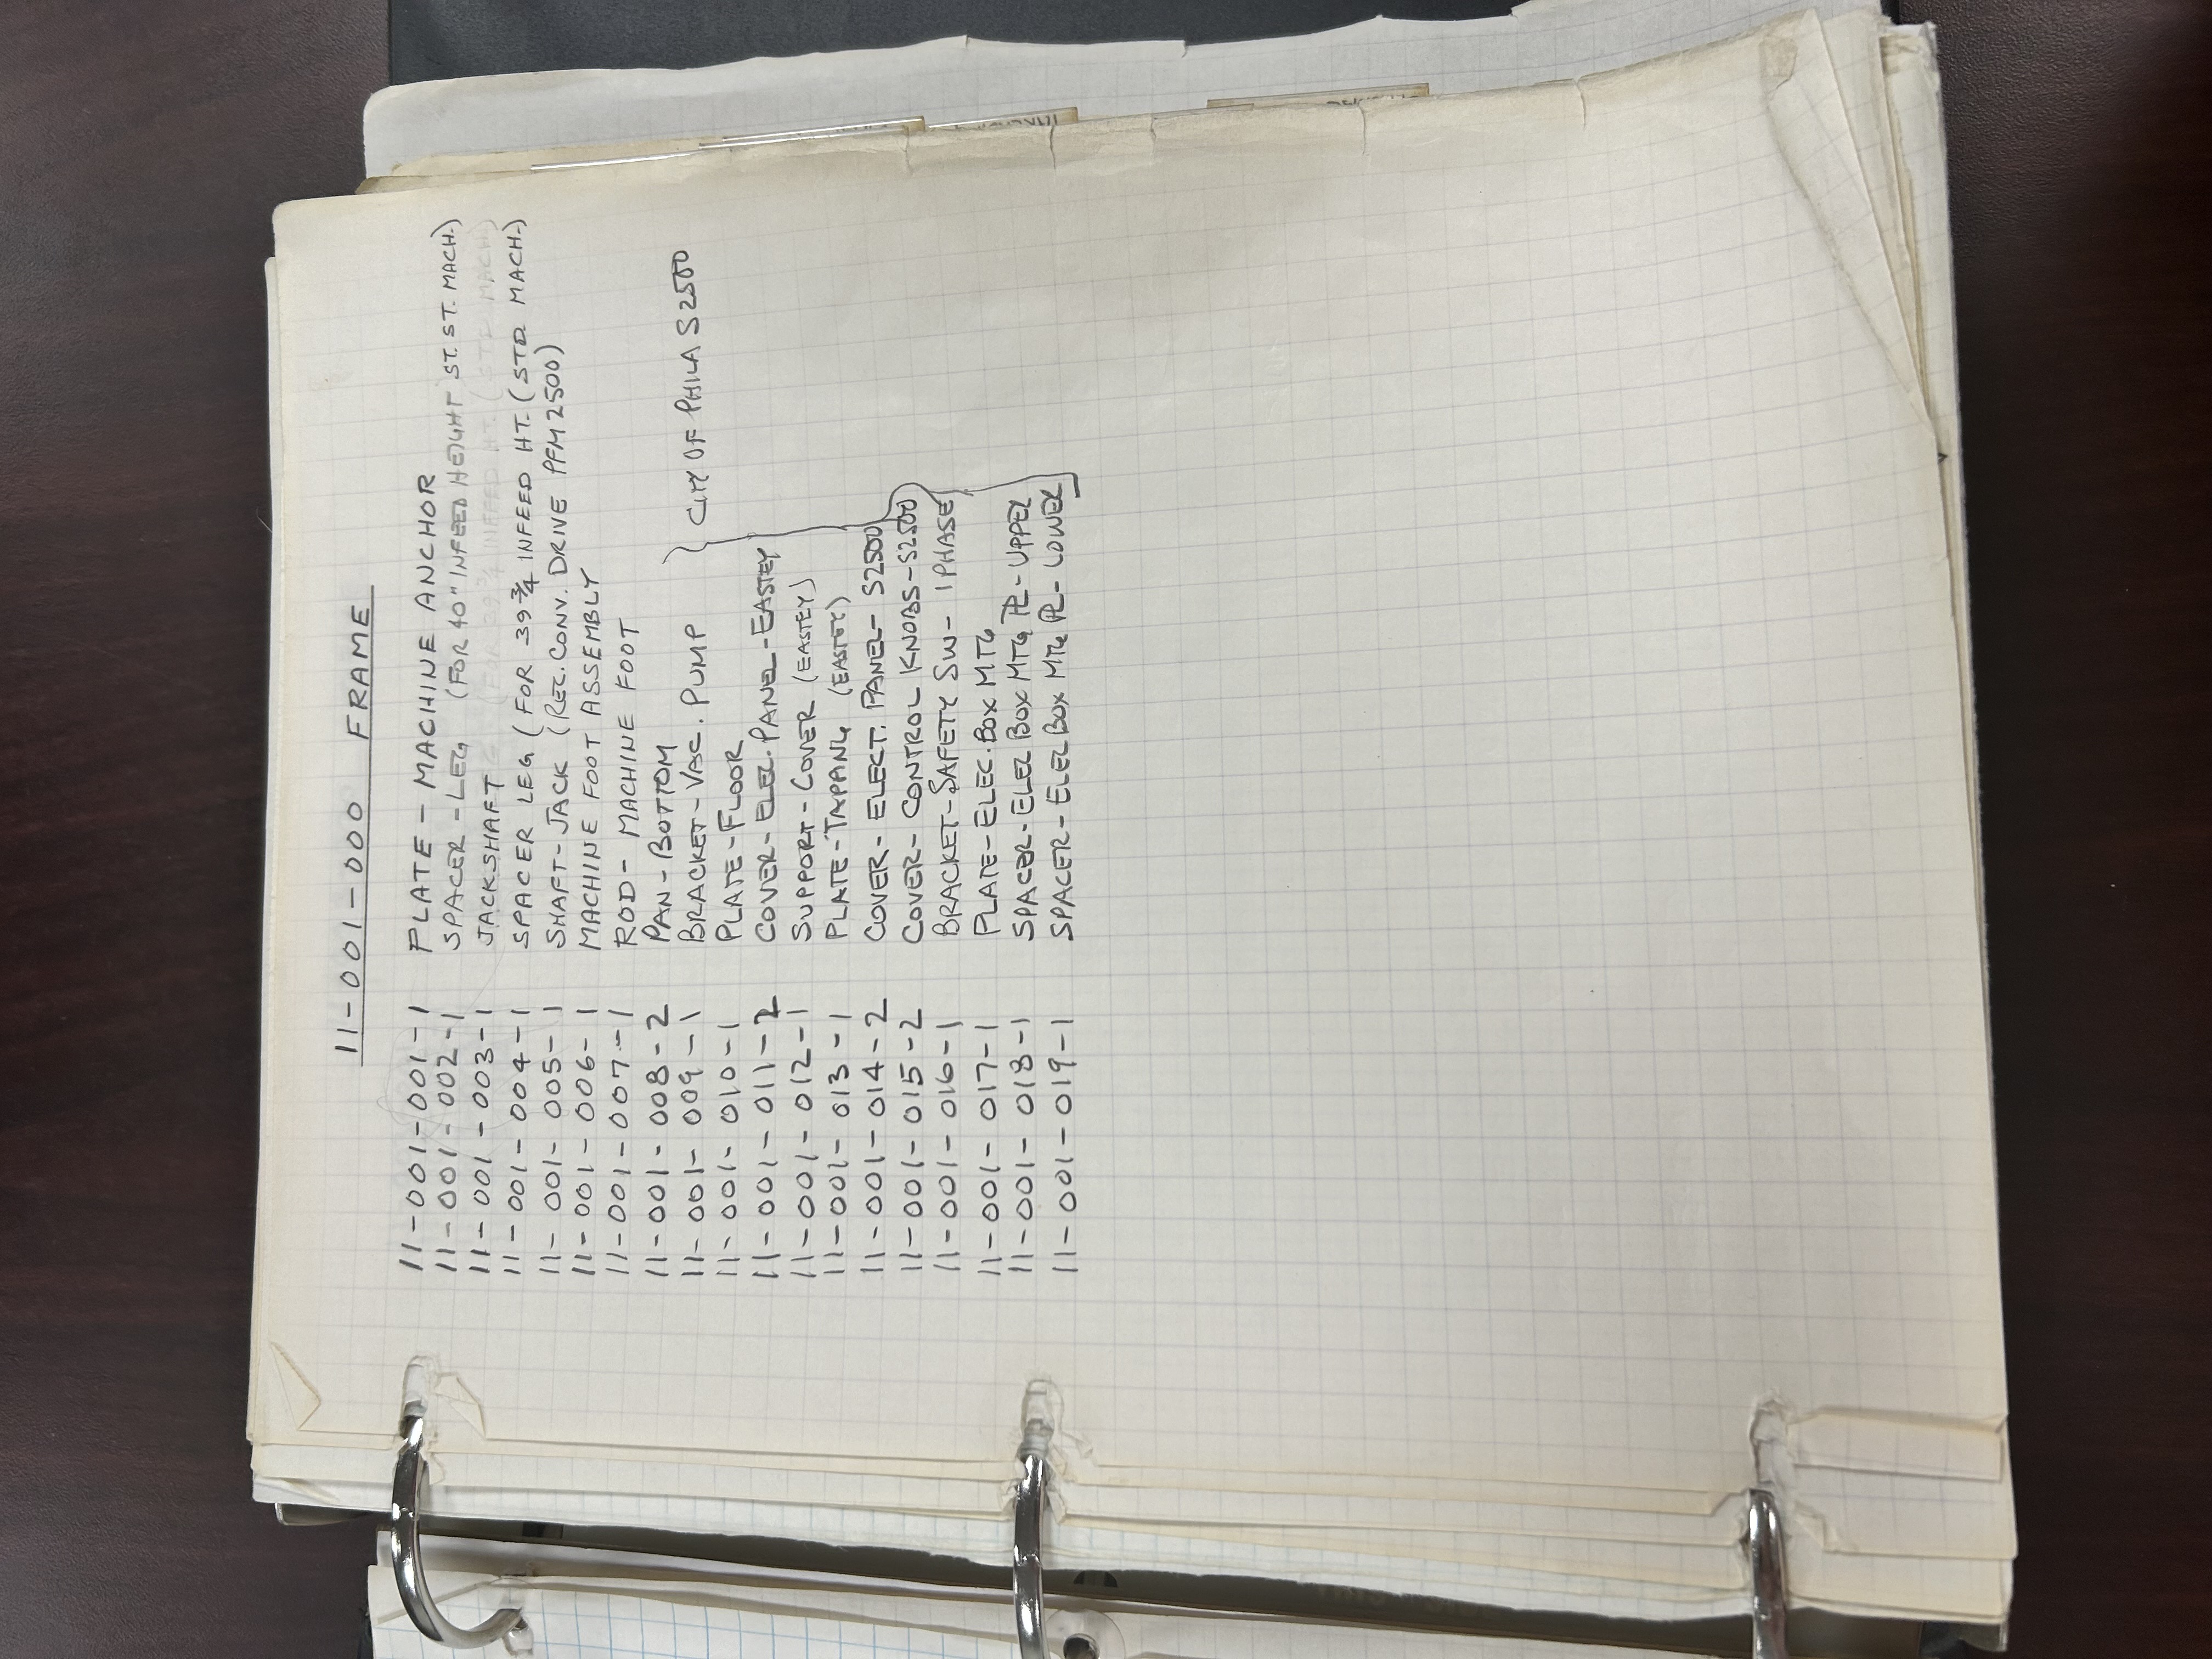 11-001-000 FRAME
11-001-001-1 PLATE - MACHINE ANCHOR
11-001-002-1 SPACER - LEG (FOR 40" INFEED HEIGHT ST. ST. MACH.)
11-001-003-1 JACKSHAFT
11-001-004-1 SPACER LEG (FOR 39 3/4 INFEED HT. (STD. MACH.)
11-001-005-1 SHAFT-JACK (REC. CONV. DRIVE PFM 2500)
11-001-006-1 MACHINE FOOT ASSEMBLY
11-001-007-1 ROD - MACHINE FOOT
11-001-008-2 PAN - BOTTOM
11-001-009-1 BRACKET - VAC. PUMP CITY OF PHILA S2500
11-001-010-1 PLATE-FLOOR
11-001-011-2 COVER - ELEC. PANEL - EASTEY
11-001-012-1 SUPPORT - COVER (EASTEY)
11-001-013-1 PLATE - (EASTEY)
11-001-014-2 COVER - ELECT. PANEL - S2500
11-001-015-2 COVER - CONTROL KNOBS - S2500
11-001-016-1 BRACKET - SAFETY SW - 1 PHASE
11-001-017-1 PLATE - ELEC. BOX MTG
11-001-018-1 SPACER - ELEC BOX MTG PL - UPPER
11-001-019-1 SPACER - ELEC BOX MTG PL - LOWER